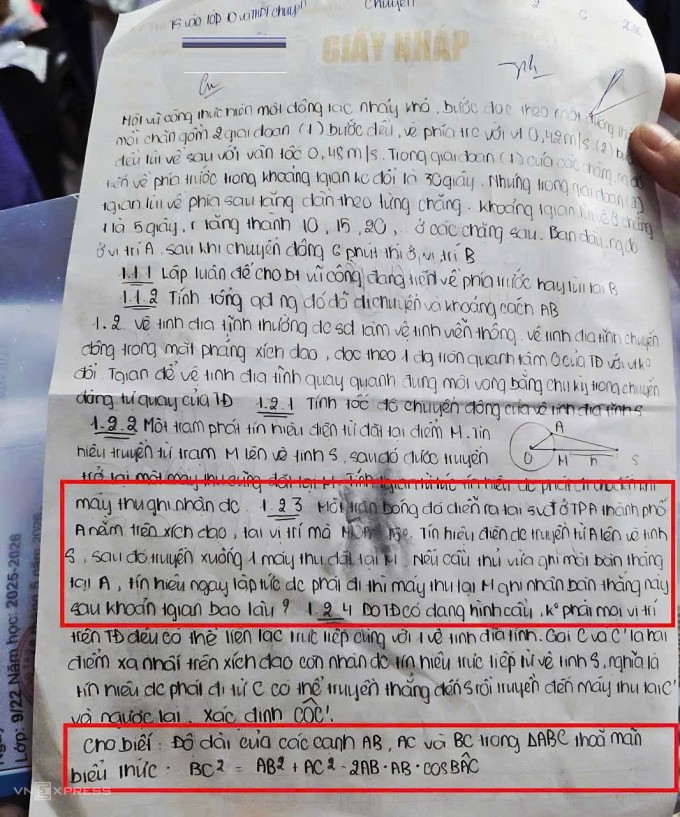 TS vào lớp 10 và THPT chuyên
Chuyên
2 6
GIẤY NHÁP
Một vũ công thực hiện một động tác nhảy khó, bước dọc theo một đường thẳng
mỗi chặn gồm 2 giai đoạn (1) bước đều, về phía trc với v1 0,42m/s (2) bước
đều lùi về sau với vận tốc 0,48 m/s. Trong giai đoạn (1) của các chặng, ng đó
tiến về phía trước trong khoảng tgian ko đổi là 30 giây. Nhưng trong giai đoạn (2)
tgian lùi về phía sau tăng dần theo từng chặng. Khoảng tgian lùi về ở chặng
1 là 5 giây, r tăng thành 10, 15, 20, .. ở các chặng sau. Ban đầu, ng đó
ở vị trí A, sau khi chuyển động 6 phút thì ở vị trí B
1.1.1 Lập luận để cho bt vũ công đang tiến về phía trước hay lùi tại B
1.1.2 Tính tổng qđ ng đó đã di chuyển và khoảng cách AB
1.2 vệ tinh địa tĩnh thường dc sd làm vệ tinh viễn thông. Vệ tinh địa tĩnh chuyển
động trong mặt phẳng xích đạo, dọc theo 1 đg tròn quanh tâm O của TĐ với v ko
đổi. Tgian để vệ tinh địa tĩnh quay quanh đúng một vòng bằng chu kỳ trong chuyển
động tự quay của TĐ 1.2.1 Tính tốc độ chuyển động của vệ tinh địa tĩnh S
1.2.2 Một trạm phát tín hiệu điện từ đặt tại điểm M. Tín
hiệu truyền từ trạm M lên vệ tinh S, sau đó được truyền
A
O M h S
trở lại một máy thu cũng đặt tại M. Tính tgian từ lúc tín hiệu dc phát đi cho đến khi
máy thu ghi nhận dc. 1.2.3 Một trận bóng đá diễn ra tại svđ ở TPA thành phố
A nằm trên xích đạo, tại vị trí mà Tín hiệu điện dc truyền từ A lên vệ tinh
S, sau đó truyền xuống 1 máy thu đặt tại M. Nếu cầu thủ vừa ghi một bàn thắng
tại A, tín hiệu ngay lập tức dc phát đi thì máy thu tại M ghi nhận bàn thắng này
sau khoản tgian bao lâu? 1.2.4 Do TĐ có dạng hình cầu, ko phải mọi vị trí
trên TĐ đều có thể liên lạc trực tiếp cùng với 1 vệ tinh địa tĩnh. Gọi C và C' là hai
điểm xa nhất trên xích đạo còn nhận dc tín hiệu trực tiếp từ vệ tinh S, nghĩa là
tín hiệu dc phát đi từ C có thể truyền thẳng đến S rồi truyền đến máy thu tại C'
và ngược lại. Xác định CÔC'.
Cho biết: Độ dài của các cạnh AB, AC và BC trong ΔABC thoả mãn
biểu thức. BC² = AB² + AC² - 2AB·AB·cosBÂC
Lớp: 9/22 Năm học: 2025-2026
VNEXPRESS